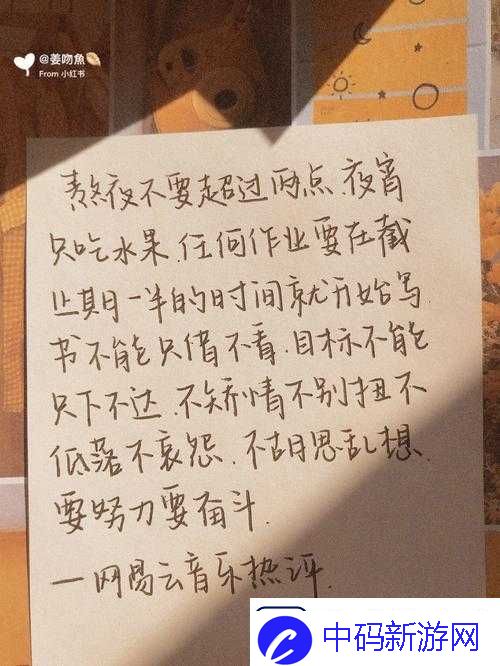 @姜吻魚
From 小红书
熬夜不要超过两点.夜宵
只吃水果.任何作业要在截
止期日一半的时间就开始写.
书不能只借不看.目标不能
只下不达.不矫情不别扭不
低落不哀怨.不胡思乱想.
要努力要奋斗.
—网易云音乐热评.
中码新游网